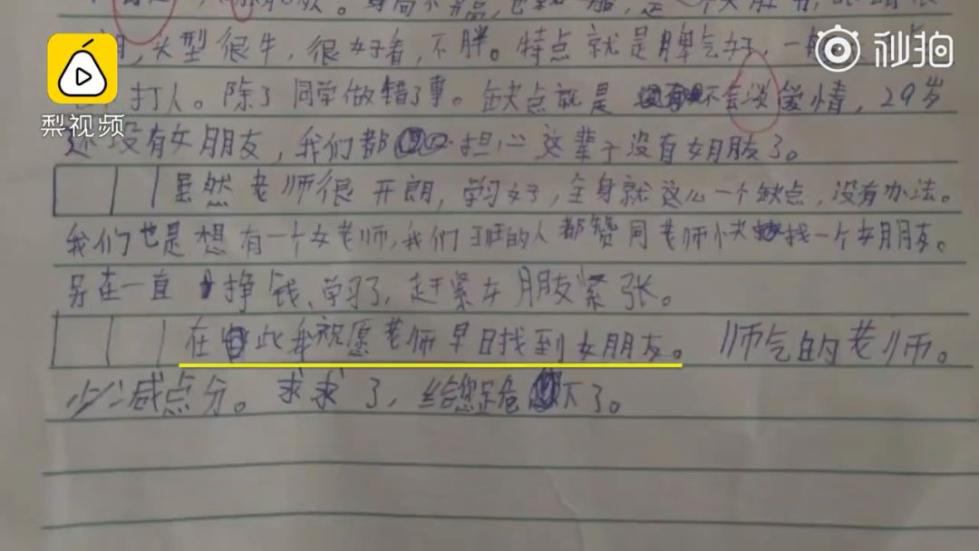 秒拍
梨视频
头型很牛，很好看，不胖。特点就是脾气好，一般
打人。除了同学做错了事。缺点就是不会谈爱情，29岁
还没有女朋友，我们都担心这辈子没有女朋友了。
虽然老师很开朗，学习好，全身就这么一个缺点，没有办法。
我们也是想有一个女老师，我们班的人都赞同老师快找一个女朋友。
另在一直挣钱、学习了，赶紧女朋友紧张。
在此我祝愿老师早日找到女朋友。帅气的老师。
少減点分。求求了，给您跪下了。